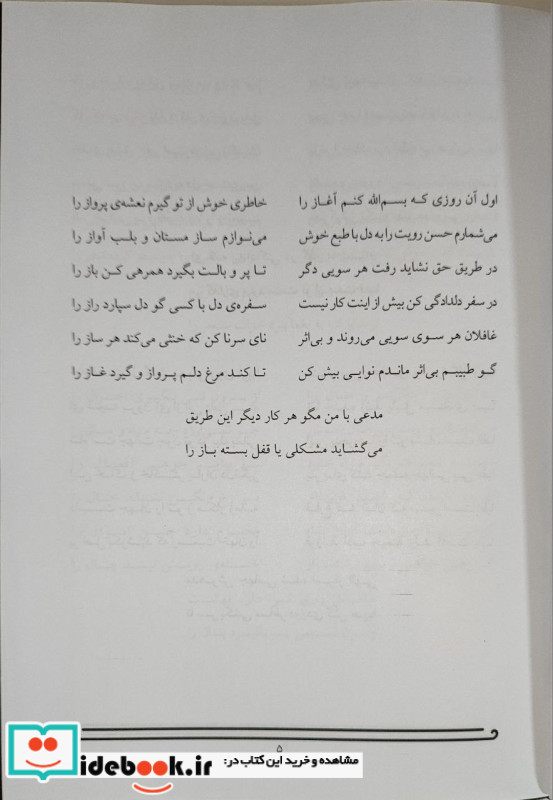 اول آن روزی که بسم‌الله کنم آغاز را	خاطری خوش از تو گیرم نعشه‌ی پرواز را
می‌شمارم حسن رویت را به دل با طبع خوش	می‌نوازم ساز مستان و بلب آواز را
در طریق حق نشاید رفت هر سویی دگر	تا پر و بالت بگیرد همرهی کن باز را
در سفر دلدادگی کن بیش از اینت کار نیست	سفره‌ی دل با کسی گو دل سپارد راز را
غافلان هر سوی سویی می‌روند و بی‌اثر	نای سرنا کن که خنثی می‌کند هر ساز را
گو طبیبم بی‌اثر ماندم نوایی بیش کن	تا کند مرغ دلم پرواز و گیرد غاز را
مدعی با من مگو هر کار دیگر این طریق
می‌گشاید مشکلی یا قفل بسته باز را
۵
مشاهده و خرید این کتاب در:
idebook.ir